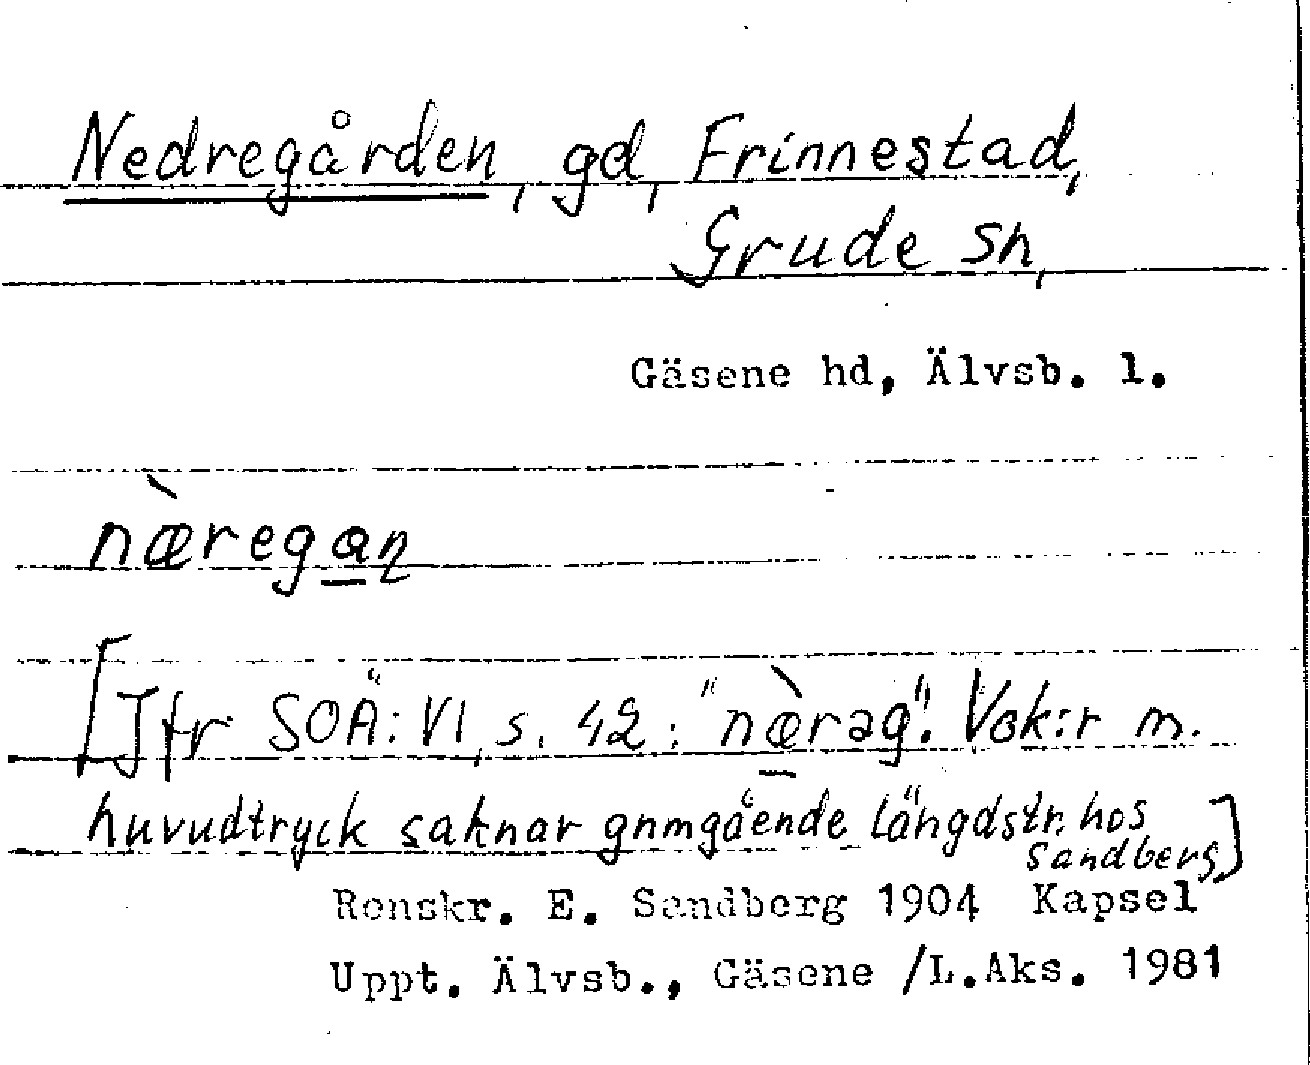 Nedregården, gd, Frinnestad,
Grude sn,
Gäsene hd, Älvsb. l.
næ̀regan̨
[Jfr SOÄ: VI, s. 42: "næ̱̀rag". Vok:r m.
huvudtryck saknar gnmgående längdstr. hos
Sandberg]
Renskr. E. Sandberg 1904 Kapsel
Uppt. Älvsb., Gäsene /L.Aks. 1981